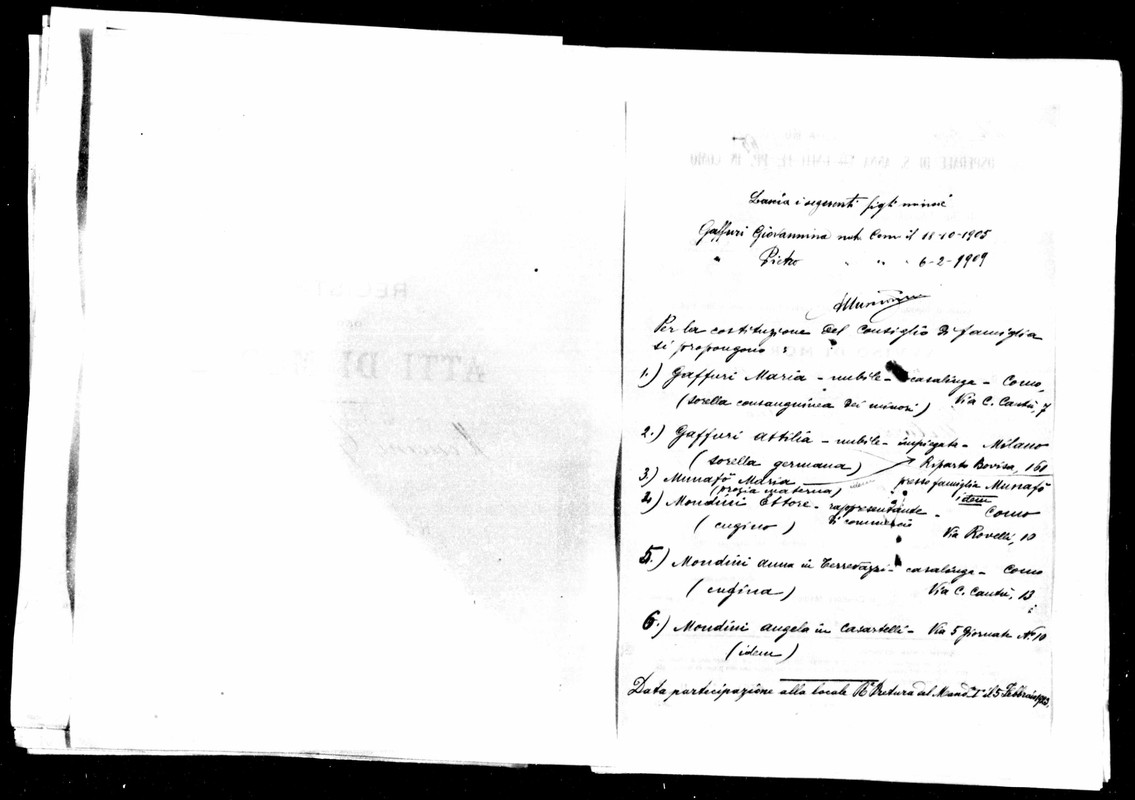 Lascia i seguenti figli minori
Gaffuri Giovannina nata Como il 18-10-1905
" Pietro " " " 6-2-1909
Per la costituzione del Consiglio di famiglia
si propongono :
1.) Gaffuri Maria - nubile - casalinga - Como,
(sorella consanguinea dei minori) Via C. Cantù, 7
2.) Gaffuri Attilia - nubile - impiegata - Milano
(sorella germana) Riparto Bovisa, 160
3.) Munafò Maria presso famiglia Munafò
(prozia materna) idem
4.) Mondini Ettore - rappresentante - Como
(cugino) di commercio Via Rovelli, 10
5.) Mondini Anna in Terrevazzi - casalinga - Como
(cugina) Via C. Cantù, 13
6.) Mondini Angela in Casartelli - Via 5 Giornate N° 10
(idem)
Data participazione alla locale Ra Pretura del Mand. I° il 5 Febbraio
ATTI DI
OSPEDALE DI S. ANNA IN COMO